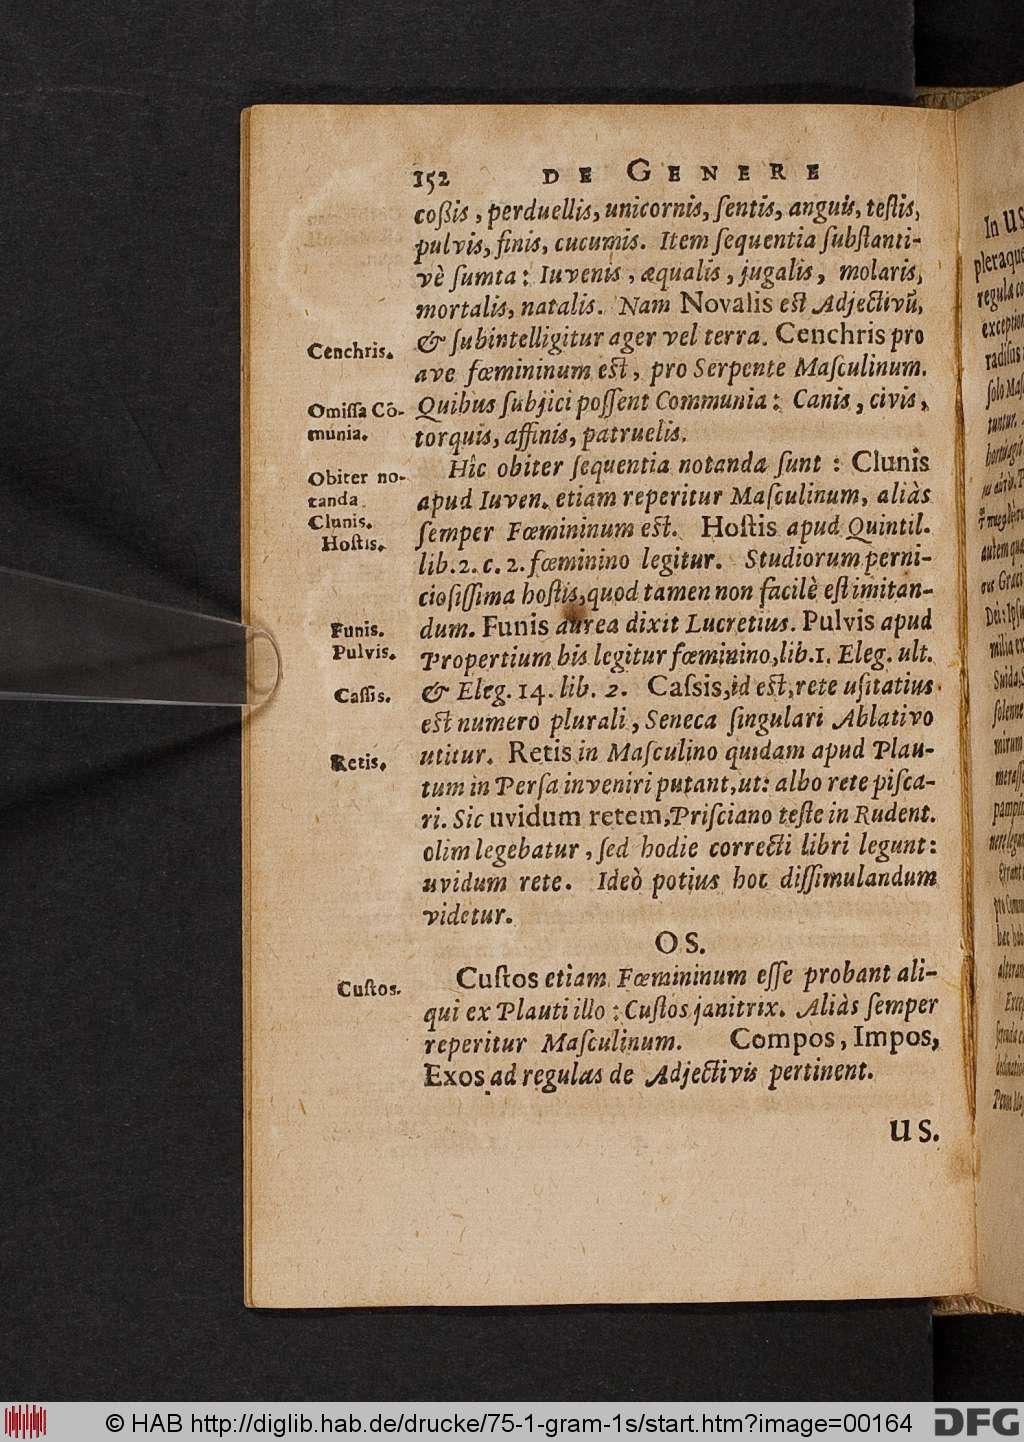 152 DE GENERE
coßis, perduellis, unicornis, ſentis, anguis, teſtis,
pulvis, finis, cucumis. Item ſequentia ſubſtanti-
vè ſumta: Iuvenis, æqualis, jugalis, molaris,
mortalis, natalis. Nam Novalis est Adjectivũ,
& ſubintelligitur ager vel terra. Cenchris pro
Cenchris.
ave fœmininum est, pro Serpente Maſculinum.
Quibus ſubjici poſſent Communia: Canis, civis,
Omiſſa Cō-
munia.
torquis, affinis, patruelis.
Hîc obiter ſequentia notanda ſunt: Clunis
Obiter no-
tanda
apud Iuven. etiam reperitur Maſculinum, aliàs
Clunis.
ſemper Fœmininum est. Hoſtis apud Quintil.
Hoſtis.
lib. 2. c. 2. fœminino legitur. Studiorum perni-
cioſiſſima hoſtis, quod tamen non facilè eſt imitan-
dum. Funis aurea dixit Lucretius. Pulvis apud
Funis.
Pulvis.
Propertium bis legitur fœminino, lib. 1. Eleg. ult.
& Eleg. 14. lib. 2. Caſsis, id est, rete uſitatius
Caſſis.
est numero plurali, Seneca ſingulari Ablativo
utitur. Retis in Maſculino quidam apud Plau-
Retis.
tum in Perſa inveniri putant, ut: albo rete piſca-
ri. Sic uvidum retem, Priſciano teſte in Rudent.
olim legebatur, ſed hodie correcti libri legunt:
uvidum rete. Ideò potius hoc diſſimulandum
videtur.
OS.
Cuſtos etiam Fœmininum eſſe probant ali-
Cuſtos.
qui ex Plauti illo: Cuſtos janitrix. Aliàs ſemper
reperitur Maſculinum. Compos, Impos,
Exos ad regulas de Adjectivis pertinent.
US.
In US
pleraque
© HAB http://diglib.hab.de/drucke/75-1-gram-1s/start.htm?image=00164
DFG